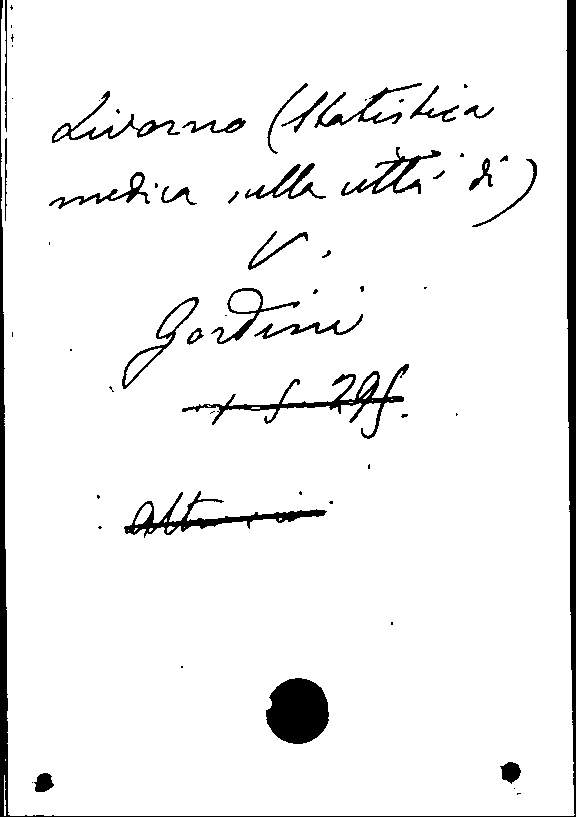 Livorno (Statistica
medica sulla città di)
V.
Gordini